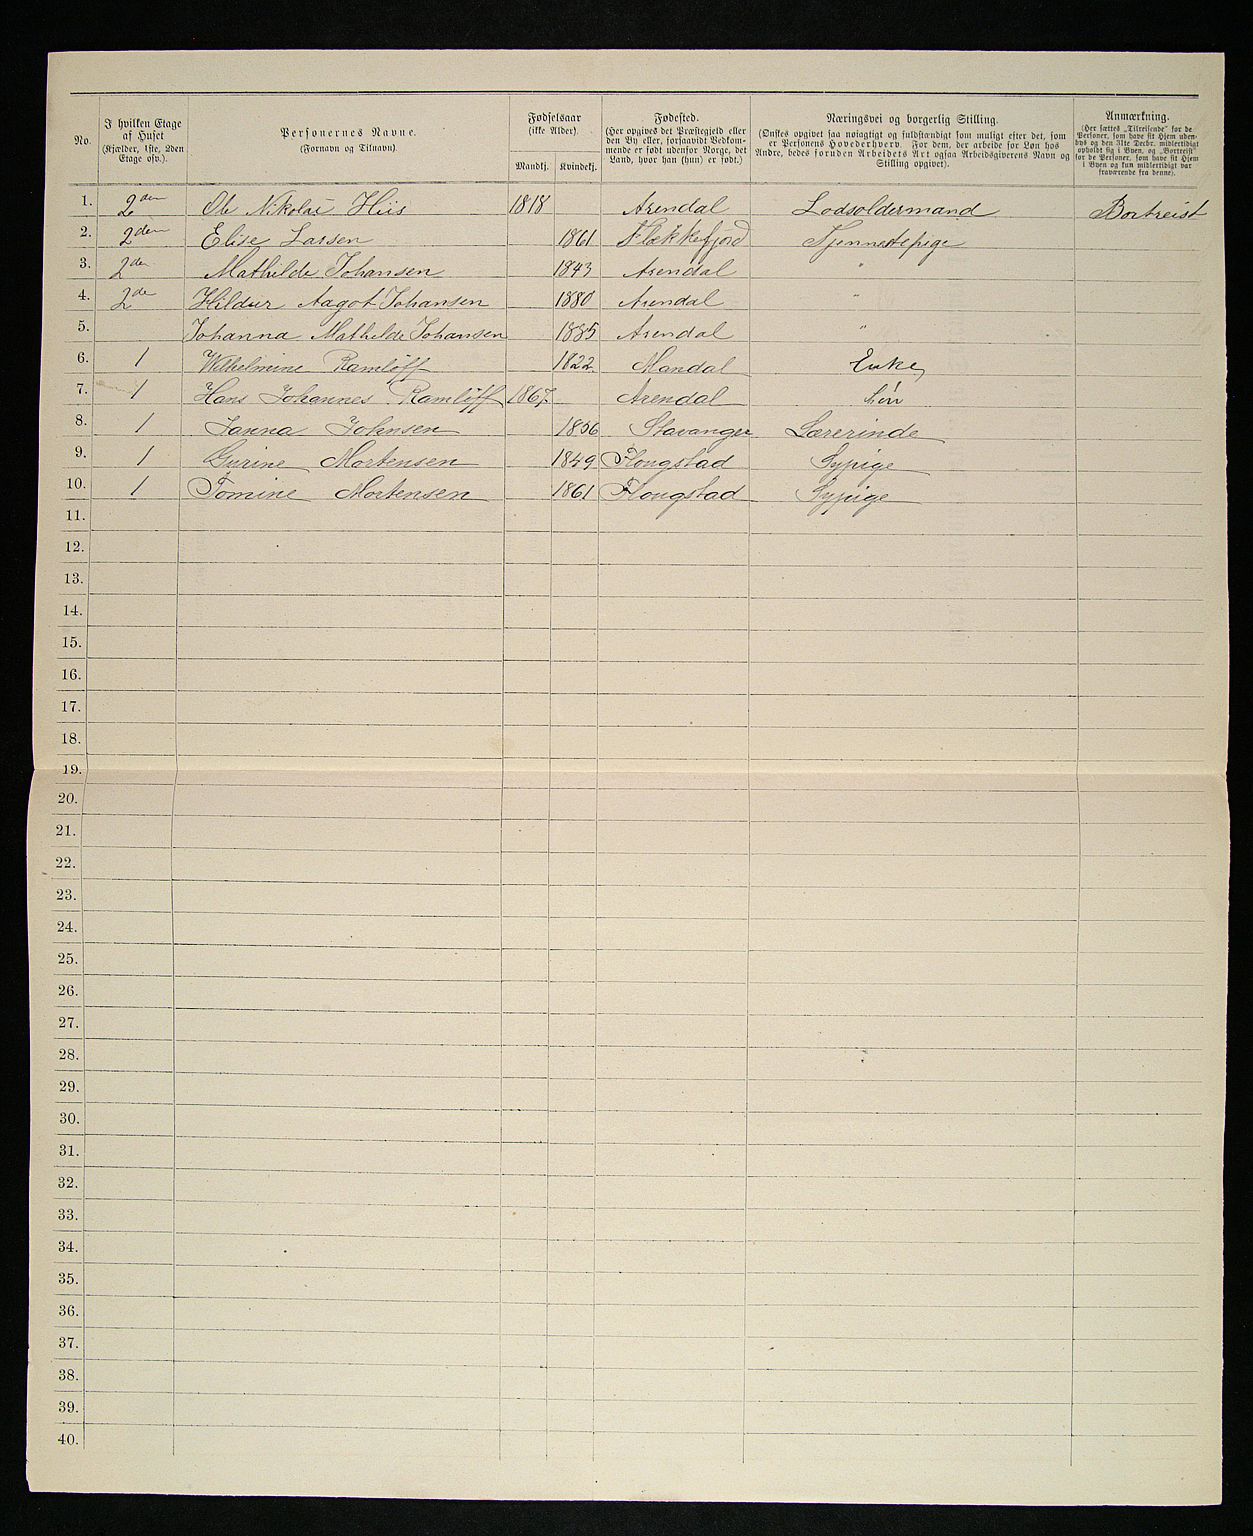 No. I hvilken Etage af Huset (Kjælder, 1ste, 2den Etage osv.). Personernes Navne. (Fornavn og Tilnavn). Fødselsaar (ikke Alder). Mandkj. Kvindekj. Fødested. (Her opgives det Præstegjeld eller den By eller, forsaavidt Vedkommende er født udenfor Norge, det Land, hvor han (hun) er født.) Næringsvei og borgerlig Stilling. (Ønskes opgivet saa nøiagtigt og fuldstændigt som muligt efter det, som er Personens Hovederhverv. For dem, der arbeide for Løn hos Andre, bedes foruden Arbeidets Art ogsaa Arbeidsgiverens Navn og Stilling opgivet). Anmærkning. (Her sættes „Tilreisende“ for de Personer, som have sit Hjem udenbys og den 31te Decbr. midlertidigt opholdt sig i Byen, og „Bortreist“ for de Personer, som have sit Hjem i Byen og kun midlertidigt var fraværende fra denne).
1. 2den Ole Nikolai Hiis 1818 Arendal Lodsoldermand Bortreist
2. 2den Elise Larsen 1861 Flækkefjord Tjenestepige
3. 2de Mathilde Johansen 1843 Arendal "
4. 2de Hildur Aagot Johansen 1880 Arendal "
5. Johanna Mathilde Johansen 1885 Arendal "
6. 1 Wilhelmine Ramløff 1822 Mandal Enke,
7. 1 Hans Johannes Ramløff 1867. Arendal Søn
8. 1 Janna Johnsen 1856 Stavanger Lærerinde
9. 1 Gurine Mortensen 1849 Sypige
10. 1 Tomine Mortensen 1861 Sypige
11.
12.
13.
14.
15.
16.
17.
18.
19.
20.
21.
22.
23.
24.
25.
26.
27.
28.
29.
30.
31.
32.
33.
34.
35.
36.
37.
38.
39.
40.